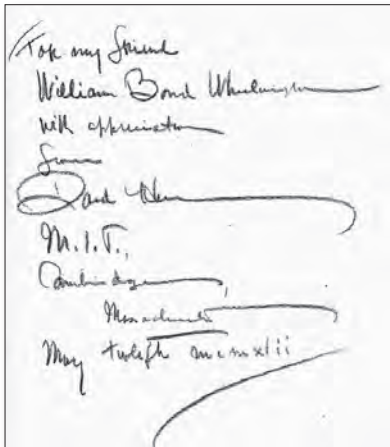 For my friend
William Bond Wheelwright
with appreciation
from
Dard Hunter
M.I.T.,
Cambridge,
Massachusetts
May twelfth mcmxlii